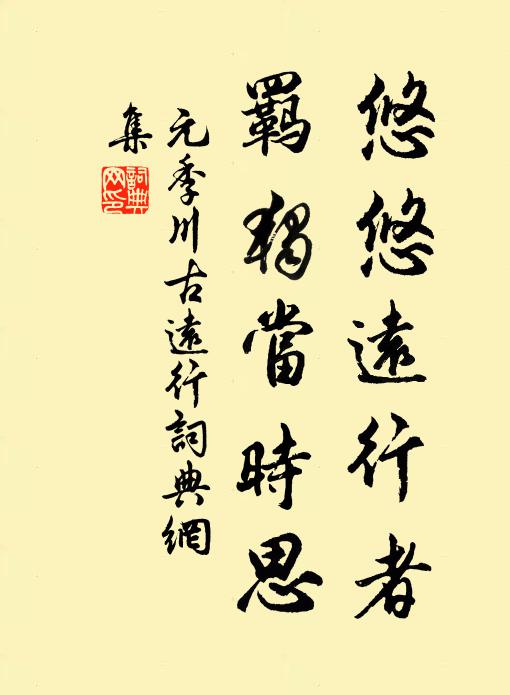 悠悠遠行者
羈獨當時思
元季川古遠行詞典網
集
詞典
网印